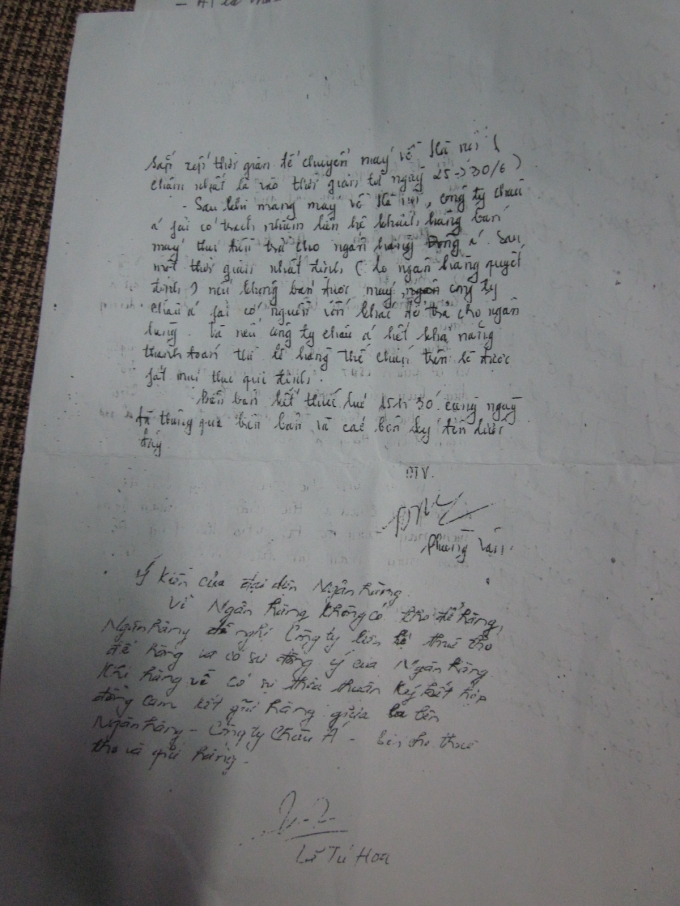 sắp xếp thời gian để chuyển máy về Hà nội (
chậm nhất là vào thời gian từ ngày 25 -> 30/6)
- Sau khi mang máy về Hà nội, công ty châu
á fải có trách nhiệm liên hệ khách hàng bán
máy thu tiền trả cho ngân hàng Đông á. Sau
một thời gian nhất định (do ngân hàng quyết
định) nếu không bán được máy, công ty
châu á fải có nguồn vốn khác để trả cho ngân
hàng. Và nếu công ty châu á hết khả năng
thanh toán thì lô hàng thế chấp trên sẽ được
fát mại theo qui định.
Biên bản kết thúc lúc 15h 30' cùng ngày
đã thông qua biên bản và các bên ký tên dưới
đây.
ĐTV.
Phùng Vân.
Ý kiến của đại diện Ngân hàng.
Vì Ngân hàng không có kho để hàng,
Ngân hàng đề nghị Công ty liên hệ thuê kho
để hàng và có sự đồng ý của Ngân hàng
Khi hàng về có sự thỏa thuận ký kết hợp
đồng cam kết gửi hàng giữa ba bên
Ngân hàng - Công ty Châu Á - bên cho thuê
kho và gửi hàng.
Lê Tú Hoa